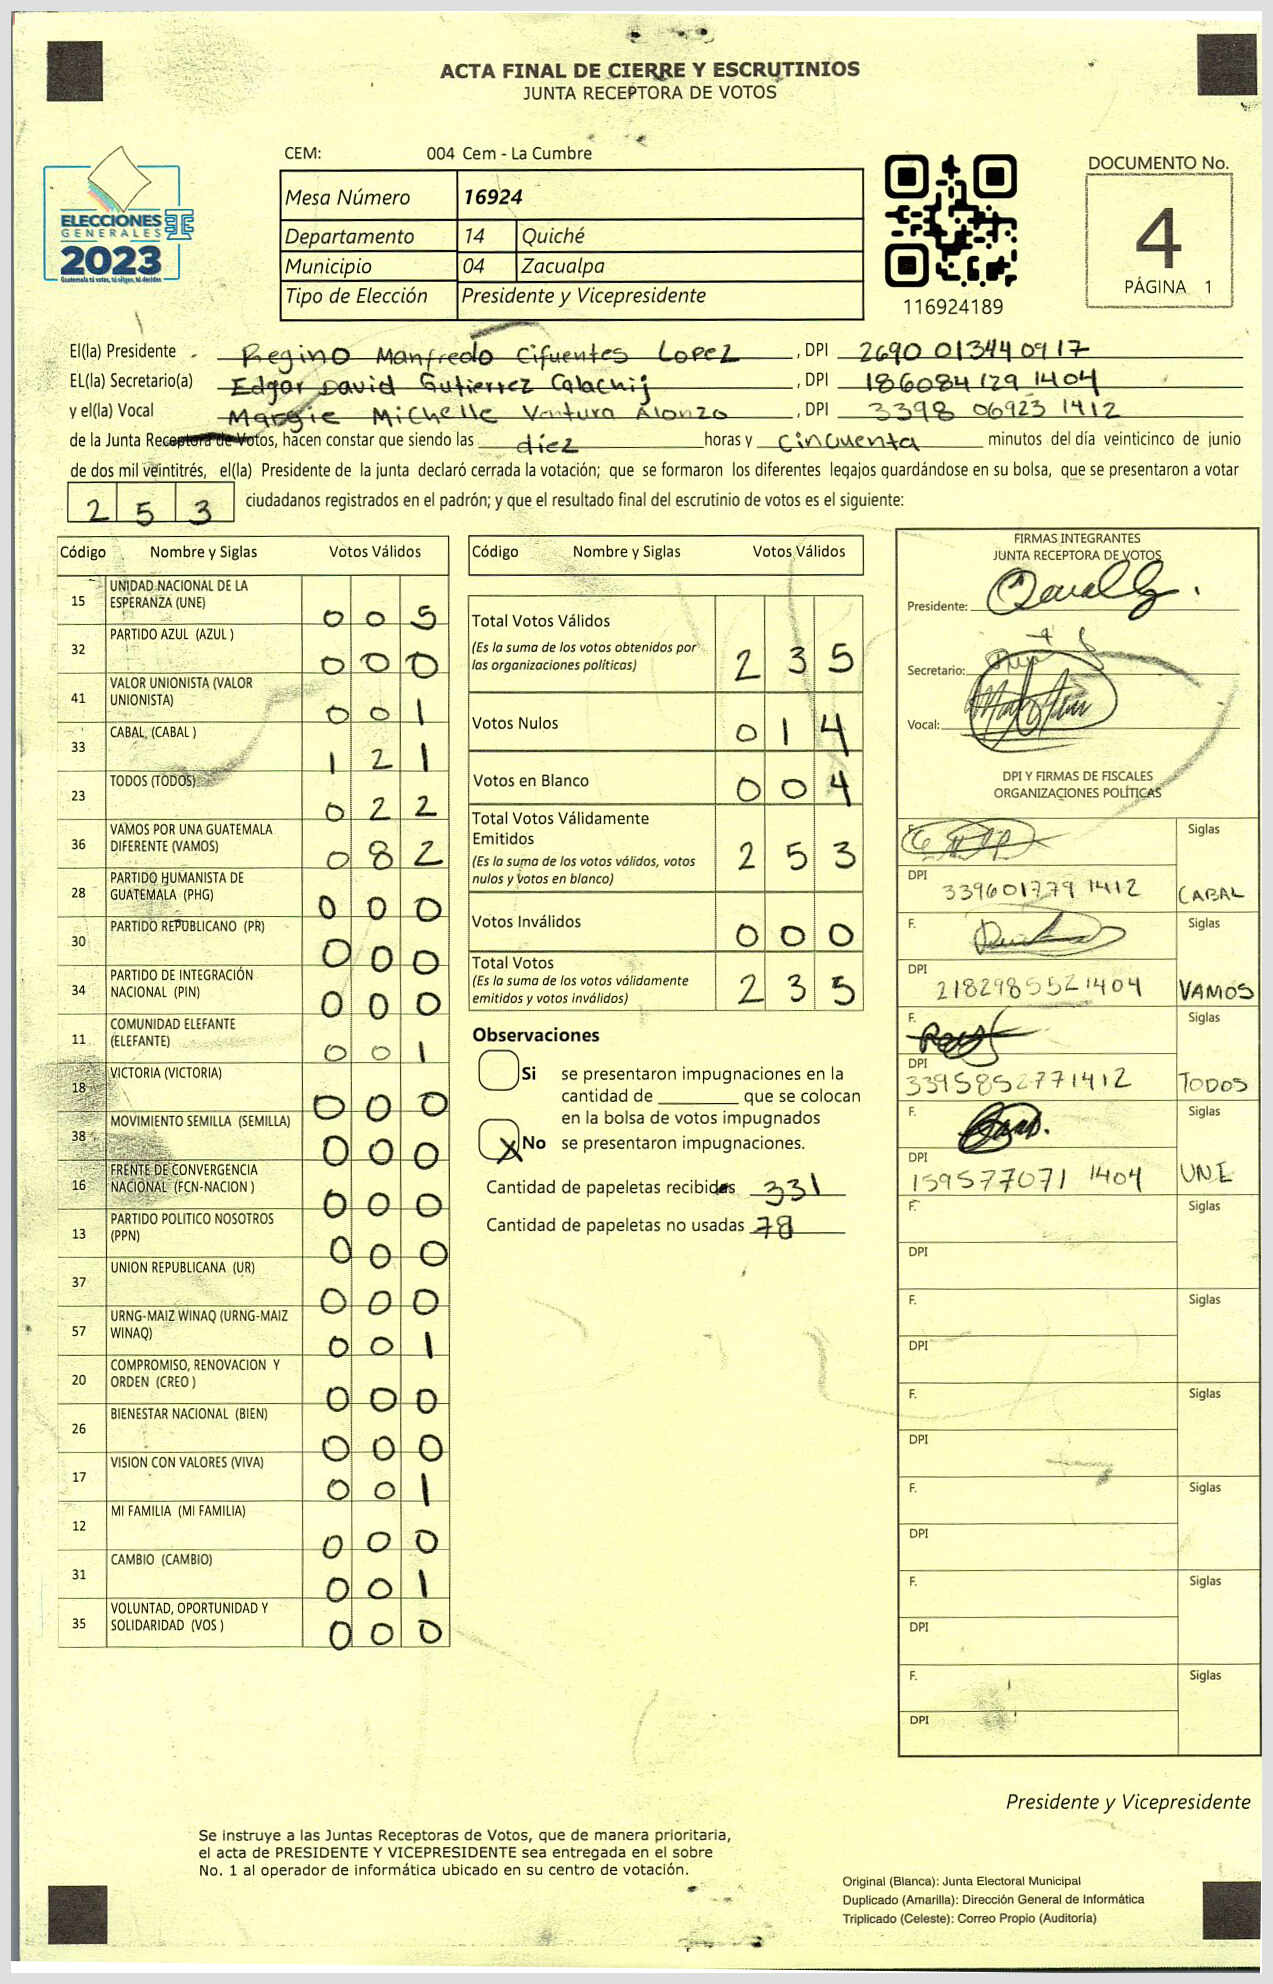 ACTA FINAL DE CIERRE Y ESCRUTINIOS
JUNTA RECEPTORA DE VOTOS
CEM: 004 Cem - La Cumbre
Mesa Número 16924
Departamento 14 Quiché
Municipio 04 Zacualpa
Tipo de Elección Presidente y Vicepresidente
ELECCIONES
GENERALES
2023
Guatemala tú votas, tú eliges, tú decides
116924189
DOCUMENTO No.
4
PÁGINA 1
El(la) Presidente Regino Manfredo Cifuentes Lopez, DPI 2690 01344 0917
EL(la) Secretario(a) Edgar David Gutierrez Calachij, DPI 186084129 1404
y el(la) Vocal Margie Michelle Ventura Alonzo, DPI 3398 06923 1412
de la Junta Receptora de Votos, hacen constar que siendo las diez horas y cincuenta minutos del día veinticinco de junio
de dos mil veintitrés, el(la) Presidente de la junta declaró cerrada la votación; que se formaron los diferentes legajos guardándose en su bolsa, que se presentaron a votar
253 ciudadanos registrados en el padrón; y que el resultado final del escrutinio de votos es el siguiente:
Código Nombre y Siglas Votos Válidos
15 UNIDAD NACIONAL DE LA ESPERANZA (UNE) 005
32 PARTIDO AZUL (AZUL ) 000
41 VALOR UNIONISTA (VALOR UNIONISTA) 001
33 CABAL, (CABAL ) 121
23 TODOS (TODOS) 022
36 VAMOS POR UNA GUATEMALA DIFERENTE (VAMOS) 082
28 PARTIDO HUMANISTA DE GUATEMALA (PHG) 000
30 PARTIDO REPUBLICANO (PR) 000
34 PARTIDO DE INTEGRACIÓN NACIONAL (PIN) 000
11 COMUNIDAD ELEFANTE (ELEFANTE) 001
18 VICTORIA (VICTORIA) 000
38 MOVIMIENTO SEMILLA (SEMILLA) 000
16 FRENTE DE CONVERGENCIA NACIONAL (FCN-NACION ) 000
13 PARTIDO POLITICO NOSOTROS (PPN) 000
37 UNION REPUBLICANA (UR) 000
57 URNG-MAIZ WINAQ (URNG-MAIZ WINAQ) 001
20 COMPROMISO, RENOVACION Y ORDEN (CREO ) 000
26 BIENESTAR NACIONAL (BIEN) 000
17 VISION CON VALORES (VIVA) 001
12 MI FAMILIA (MI FAMILIA) 000
31 CAMBIO (CAMBIO) 001
35 VOLUNTAD, OPORTUNIDAD Y SOLIDARIDAD (VOS ) 000
Código Nombre y Siglas Votos Válidos
Total Votos Válidos 235
(Es la suma de los votos obtenidos por
las organizaciones políticas)
Votos Nulos 014
Votos en Blanco 004
Total Votos Válidamente
Emitidos 253
(Es la suma de los votos válidos, votos
nulos y votos en blanco)
Votos Inválidos 000
Total Votos 235
(Es la suma de los votos válidamente
emitidos y votos inválidos)
Observaciones
Si se presentaron impugnaciones en la
cantidad de ________ que se colocan
en la bolsa de votos impugnados
X No se presentaron impugnaciones.
Cantidad de papeletas recibidas 331
Cantidad de papeletas no usadas 78
FIRMAS INTEGRANTES
JUNTA RECEPTORA DE VOTOS
Presidente:
Secretario:
Vocal:
DPI Y FIRMAS DE FISCALES
ORGANIZACIONES POLÍTICAS
F. Siglas
DPI 339601779 1412 CABAL
F. Siglas
DPI 218298552 1404 VAMOS
F. Siglas
DPI 339585277 1412 TODOS
F. Siglas
DPI 159577071 1404 UNE
F. Siglas
DPI
F. Siglas
DPI
F. Siglas
DPI
F. Siglas
DPI
F. Siglas
DPI
F. Siglas
DPI
Presidente y Vicepresidente
Se instruye a las Juntas Receptoras de Votos, que de manera prioritaria,
el acta de PRESIDENTE Y VICEPRESIDENTE sea entregada en el sobre
No. 1 al operador de informática ubicado en su centro de votación.
Original (Blanca): Junta Electoral Municipal
Duplicado (Amarilla): Dirección General de Informática
Triplicado (Celeste): Correo Propio (Auditoría)